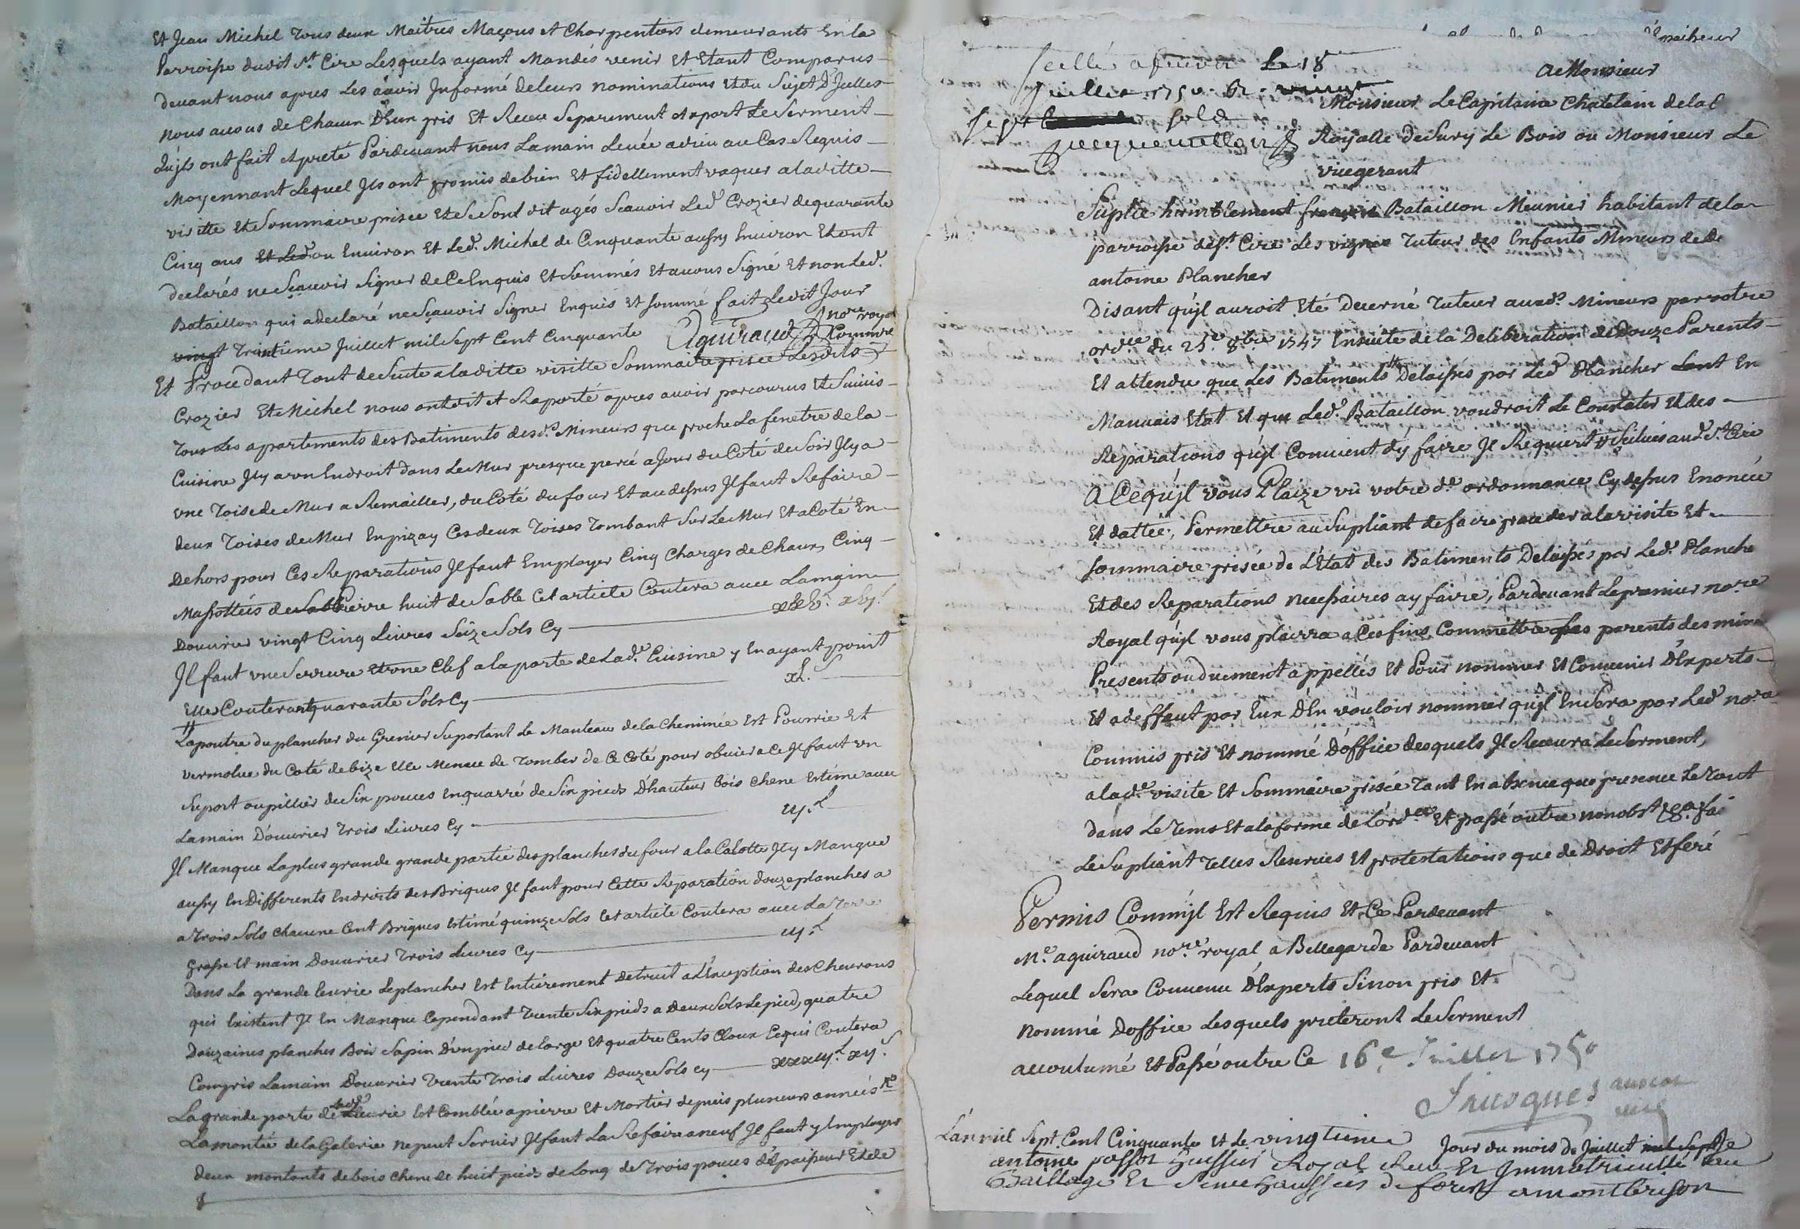 Et Jean Michel Tous deux Maitres Maçons Et Charpentiers demeurants En la
Parroisse dudit St. Cire Lesquels ayant Mandés venir et Etant Comparus
devant nous apres Les avoir Informé de leurs nominations et du Sujet D'Icelles
nous avons de Chacun D'Eux pris Et Receu Separement apart Le Serment
Qu'ils ont fait et preté Pardevant nous La main Levée au Cas Requis
Moyennant Lequel Ils ont promis de bien Et fidellement vaquer a la ditte
visitte Et Sommaire prisee Et Se Sont dit agés Scavoir Led. Crozier de quarante
Cinq ans ou Environ Et Led. Michel de Cinquante aussy Environ Et ont
declarés ne Scavoir Signer de Ce Enquis Et Sommés Et avons Signé Et non Led.
Bataillon qui a declaré ne Scavoir Signer Enquis et Sommé fait Le dit Jour
vingt Trentieme Juillet mil Sept Cent Cinquante Aguiraud nore royal Commire
Et Procedant Tout de Suite a la ditte visitte Sommaire prisee Lesdits
Crozier Et Michel nous ont dit et Raporté apres avoir parcourus Et Suivis
Tous Les appartements des Batiments desd. Mineurs que proche La fenetre de la
Cuisine Il y a un Endroit dans Le Mur presque percé a Jour du Coté du Soir Il y a
une Toise de Mur a Remailler, du Coté du four Et au dessus Il faut Refaire
deux Toises de Mur En pizay Ces deux Toises Tombant Sur Le Mur Et a Coté En
Dehors pour Ces Reparations Il faut Employer Cinq Charges de Chaux, Cinq
de Pierre huit de Sable Cet article Coutera avec La main
Douvrier vingt Cinq Livres Seize Sols Cy
Il faut une Serrure Et une Clef a la porte de Lad. Cuisine y En ayant point
Elle Coutera quarante Sols Cy xl. s
La poutre du plancher du Grenier Suportant Le Manteau de la Cheminée Est Pourrie Et
vermolue du Coté de bize Elle Menace de Tomber de Ce Coté pour obvier a Ce Il faut un
Suport ou pillier de Six pouces En quarré de Six pieds D'hauteur bois chene Estimé avec
La main D'ouvrier Trois Livres Cy iij. L
Il Manque La plus grande grande partie des planches du four a la Calotte Il y Manque
aussy En Differents Endroits des Briques Il faut pour Cette Reparation douze planches a
a Trois Sols Chacune Cent Briques Estimé quinze Sols Cet article Coutera avec La Terre
grasse Et main Douvrier Trois Livres Cy
Dans La grande Ecurie Le plancher Est Entierement detruit a L'Exception des Chevrons
qui Existent Il En Manque Cependant Trente Six pieds a Deux Sols Le pied, quatre
Douzaines planches Bois Sapin D'un pied de Large Et quatre Cents Cloux Ce qui Coutera
Compris La main D'ouvrier Trente Trois Livres Douze Sols cy xxxiij.L xij.s
La grande porte de lad. Ecurie Est Comblée a pierre Et Mortier depuis plusieurs années
La montée de la Galerie ne peut Servir Il faut La Refaire a neuf Il faut y Employer
deux montants de bois Chene de huit pieds de Long de Trois pouces d'Epaisseur Et de
Scellé Le 18
Juillet 1750
A Monsieur
Monsieur Le Capitaine Chatelain de la
Royalle de Sury Le Bois ou Monsieur Le
vicegerant
Suplie humblement françois Bataillon Meunier habitant de la
parroisse de St. Cire Les vignes Tuteur des Enfants Mineurs de
antoine Plancher
Disant qu'il auroit Eté Decerné Tuteur auxd. Mineurs par votre
ordce du 25e 8bre 1747 Ensuite de la Deliberation de douze Parents
Et attendu que Les Batiments Delaissés par Led. Plancher Sont En
Mauvais Etat Et que Led. Bataillon voudroit Le Constater Et des
Reparations qu'il Convient d'y faire Il Requiert Scitués aud. St. Cire
A Ce qu'il vous Plaize vu votre de. ordonnance Cy dessus Enoncée
Et dattée, Permettre au Supliant de faire proceder a la visite Et
Sommaire prisée de L'Etat des Batiments Delaissés par Led. Planche
Et des Reparations necessaires a y faire, Pardevant Le premier nore
Royal qu'il vous plaira a Ces fins Commettre Les parents des mine
Presents ou duement appellés Et Pour nommer Et Convenir D'Experts
Et a deffaut par Eux D'En vouloir nommer qu'il En Sera par Led. nore
Commis pris Et nommé D'office desquels Il Recevra Le Serment,
a la de. visite Et Sommaire prisée Tant En absence que presence Le Tout
dans Le Tems Et a la forme de L'ordce Et passé outre nonobst
Le Supliant Telles Reserves Et protestations que de Droit Et feré
Permis Comm'il Est Requis Et Ce Pardevant
Me. aguiraud nore royal a Bellegarde Pardevant
Lequel Sera Convenu D'Experts Sinon pris Et
nommé D'office Lesquels preteront Le Serment
accoutumé Et Passé outre Ce 16e Juillet 1750
L'an mil Sept Cent Cinquante et Le vingtieme Jour du mois de Juillet
antoine Huissier Royal Receu Et Immatriculé au
Baillage Et Senechaussée de forest a montbrison